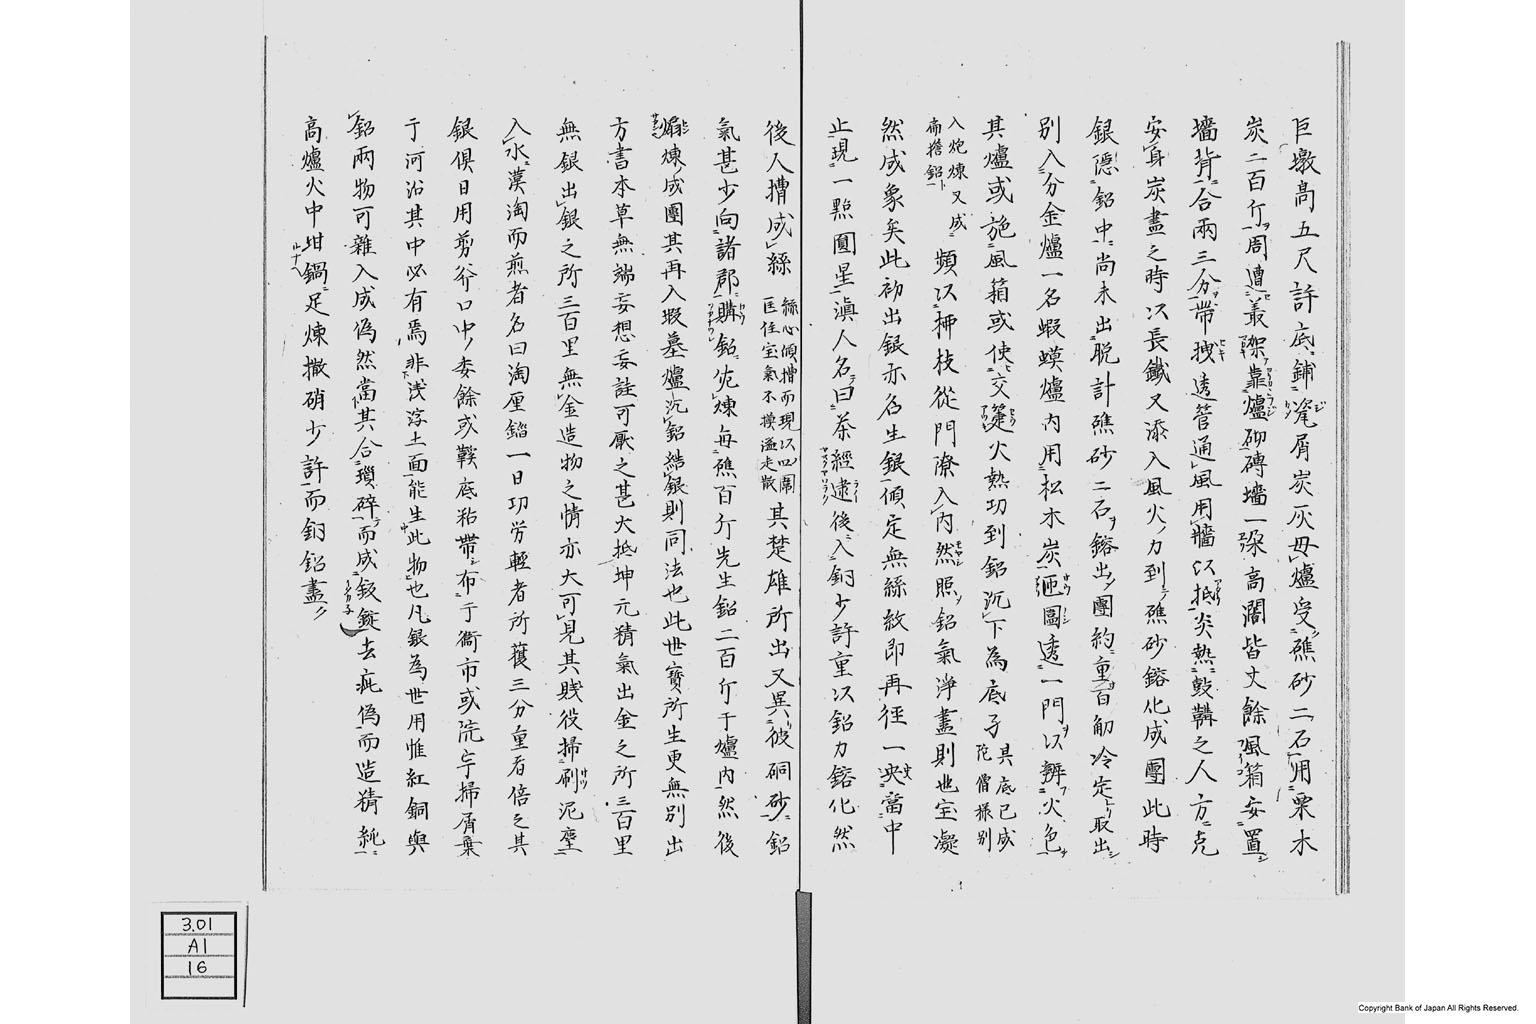 巨墩高五尺許底鋪瓷屑炭灰毎爐受礁砂二石用栗木
炭二百斤周遭叢架靠爐砌磚墻一朶高濶皆丈餘風箱安置
墻背合兩三分帶拽透管通風用墻以抵炎熱鼓鞲之人方克
安身炭盡之時以長鐵叉添入風火力到礁砂鎔化成團此時
銀隱鉛中尚未出脱計礁砂二石鎔出團約重百觔冷定取出
別入分金爐一名蝦蟆爐内用松木炭匝圍透一門以辨火色
其爐或施風箱或使交箑火熱功到鉛沉下為底子
其底已成
陀僧樣別
入炮煉又成
扁擔鉛
頻以柳枝從門隙入内然照鉛氣淨盡則世宝凝
然成象矣此初出銀亦名生銀傾定無絲紋即再徑一火當中
止現一點圓星滇人名曰茶經逮後入銅少許重以鉛力鎔化然
後人槽成絲
絲心傾槽而現以四闈
匡住宝氣不横溢走散
其楚雄所出又異彼硐砂鉛
氣甚少向諸郡購鉛佐煉毎礁百斤先生鉛二百斤于爐内然後
煽煉成團其再入蝦蟇爐沉鉛結銀則同法也此世寳所生更無別出
方書本草無端妄想妄註可厭之甚大抵坤元精氣出金之所三百里
無銀出銀之所三百里無金造物之情亦大可見其賤役掃刷泥塵
入水漢淘而煎者名曰淘厘錙一日功労輕者所獲三分重者倍之其
銀俱日用剪斧口中委餘或鞵底粘帶布于衢市或院宇掃屑棄
于河沿其中必有焉非浅浮土面能生此物也凡銀為世用惟紅銅與
鉛兩物可雜入成偽然當其合瑣碎而成鈑錠去疵偽而造精純
高爐火中坩鍋足煉撒硝少許而銅鉛盡
3.01
A1
16
Copyright Bank of Japan All Rights Reserved.